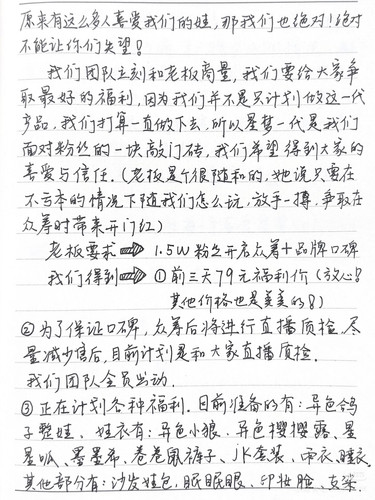 原来有这么多人喜爱我们的娃,那我们也绝对!绝对
不能让你们失望!
我们团队立刻和老板商量,我们要给大家争
取最好的福利,因为我们并不是只计划做这一代
产品,我们打算一直做下去,所以星梦一代是我们
面对粉丝的一块敲门砖,我们希望得到大家的
喜爱与信任.(老板是个很随和的,她说只要在
不亏本的情况下随我们怎么玩,放手一搏,争取在
众筹时带来开门红)
老板要求⇒1.5W粉之开启众筹+品牌口碑
我们得到⇒①前三天79元福利价(放心?
其他价格也是美美的8)
②为了保证口碑,众筹后将进行直播质检.尽
量减少售后,目前计划是和大家直播质检.
我们团队全员出动.
③正在计划各种福利.目前准备的有:异色鸽
子整娃、娃衣有:异色小狼、异色樱樱露、星
星呱、墨墨布、卷卷鼠裤子、JK套装、雨衣、睡衣.
其他部分有:沙发娃包,眠眠眼、印妆脸、